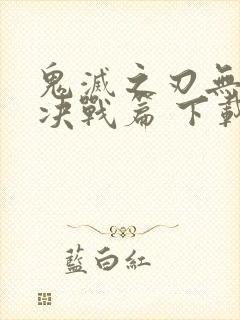 鬼滅之刃無
决戰篇 下載
藍白紅